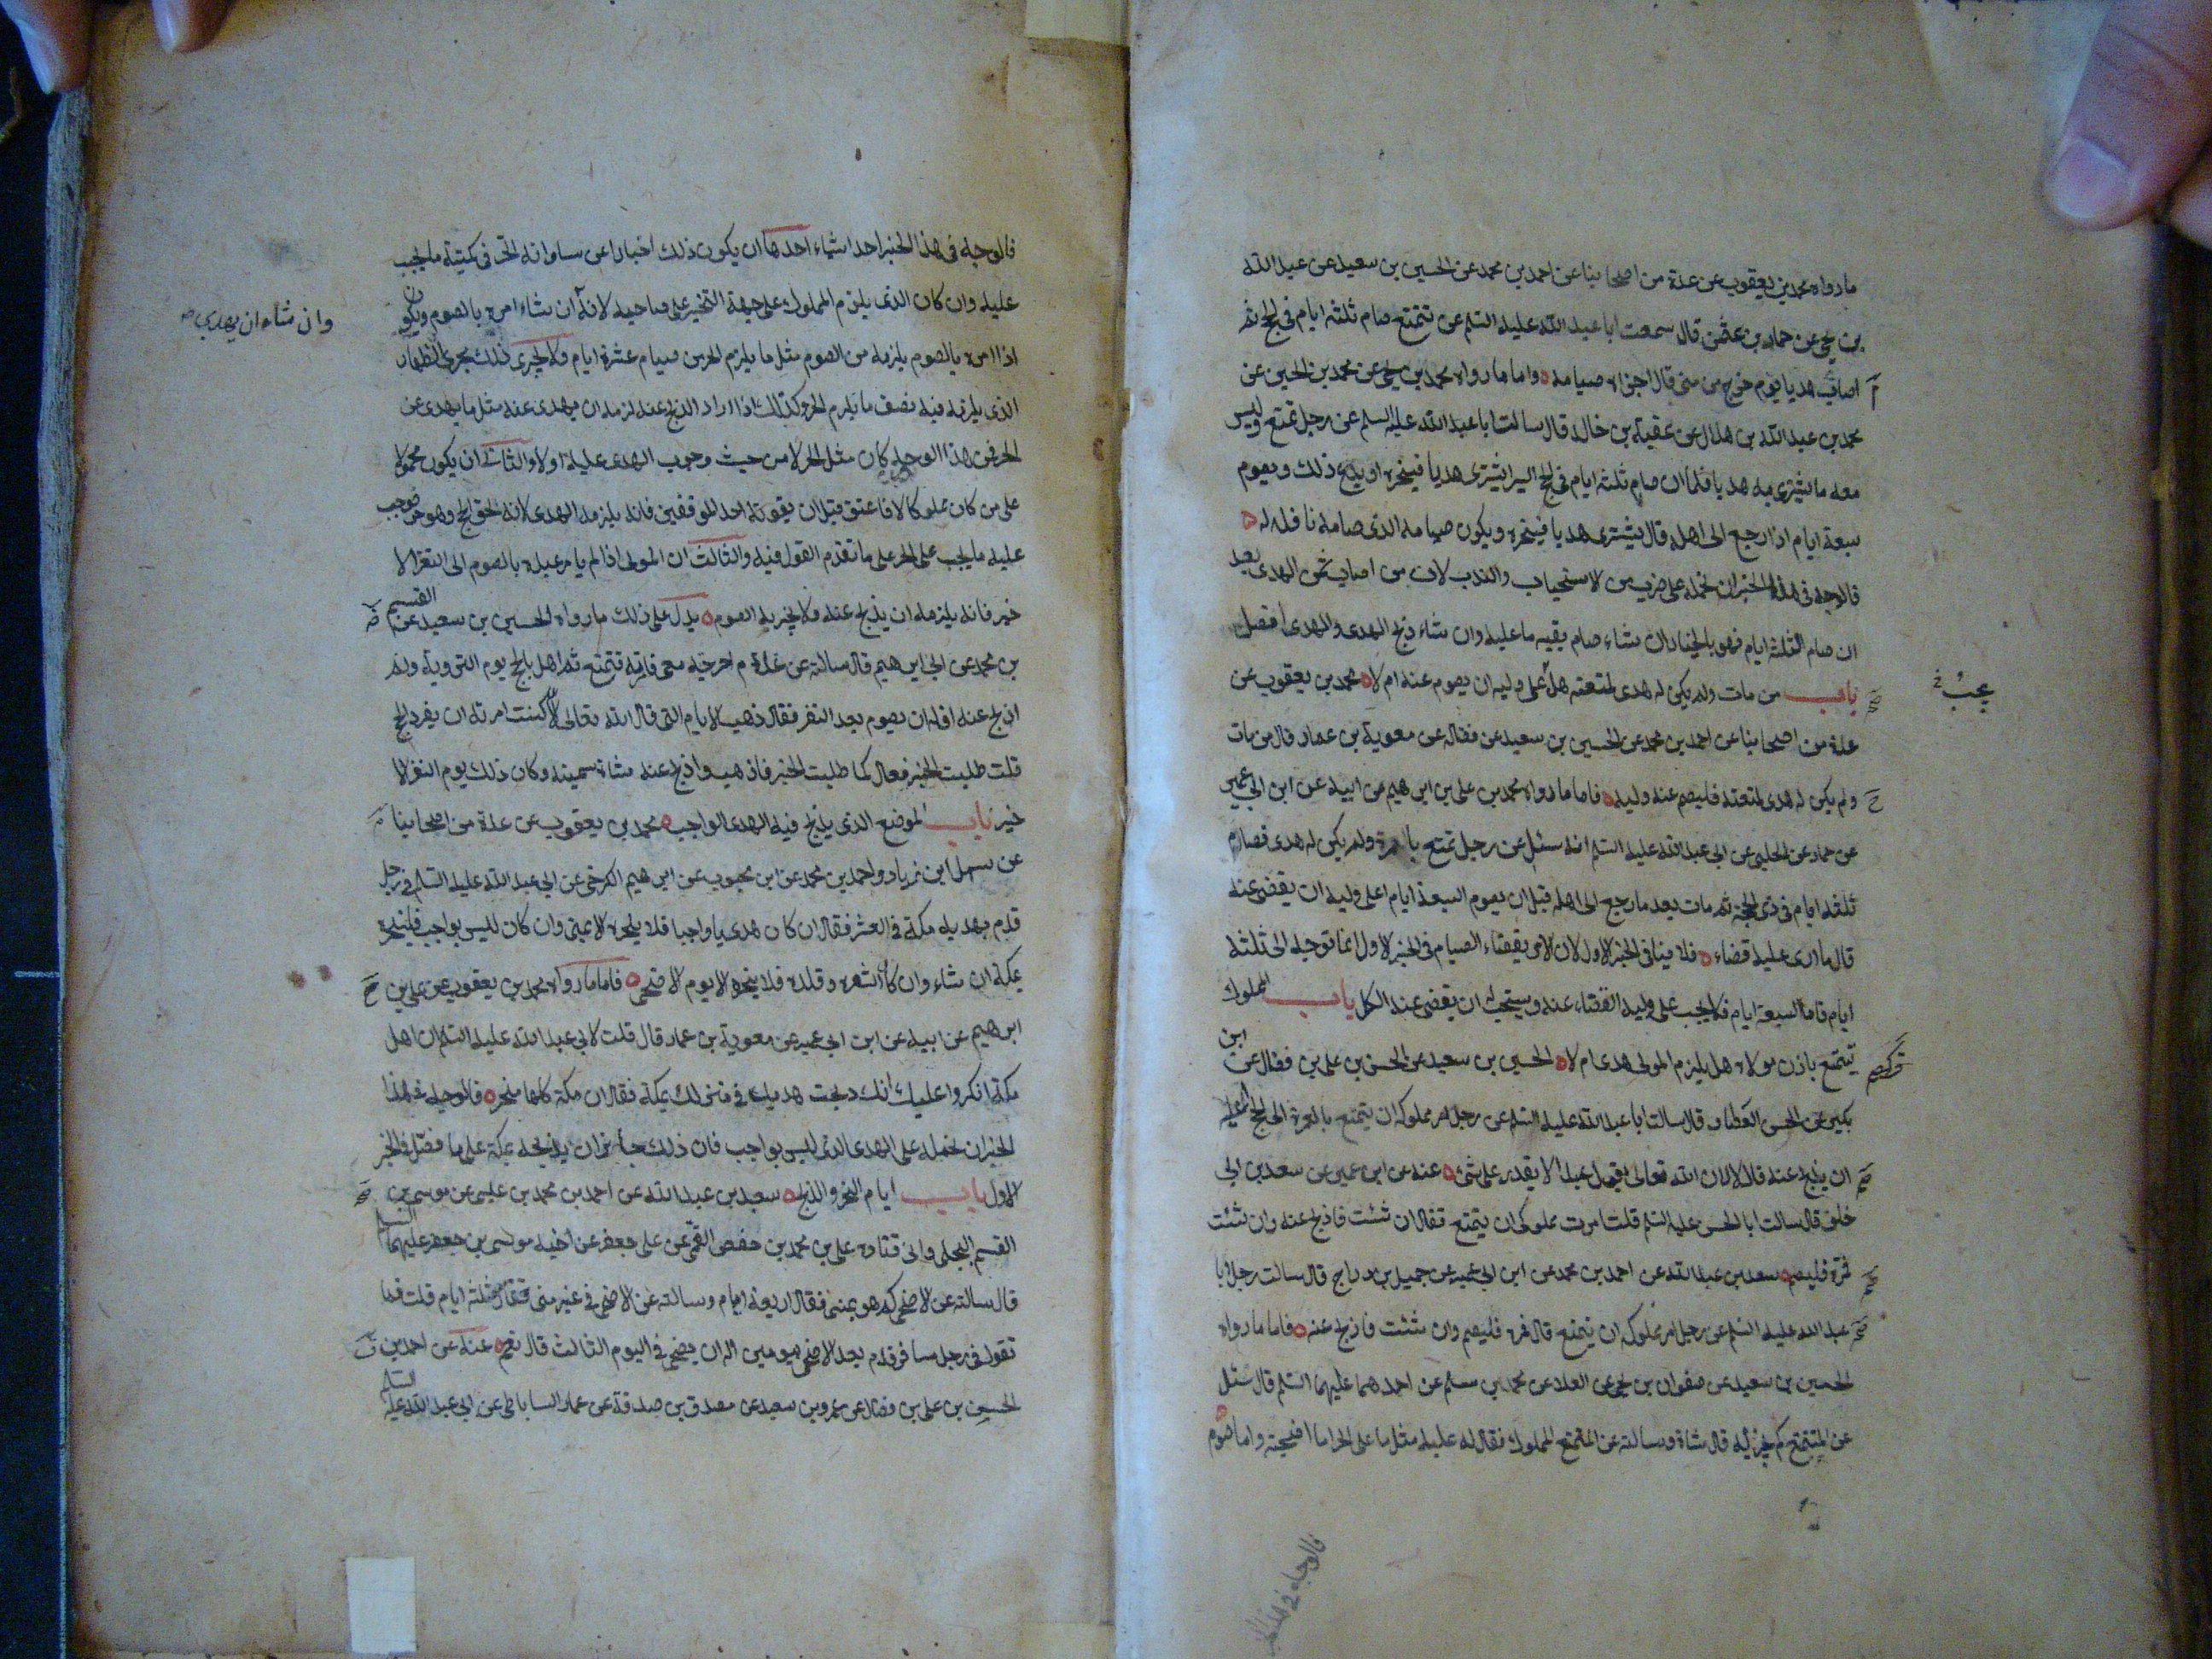 ما رواه محمد بن يعقوب عن عدة من اصحابنا عن احمد بن محمد عن الحسين بن سعيد عن عبد الله
بن يحيى عن حماد بن عثمن قال سمعت ابا عبد الله عليه السلم عن متمتع صام ثلثة ايام في الحج ثم
اصاب هديا يوم خرج من منى قال اجزاه صيامه واما ما رواه محمد بن يحيى عن محمد بن الحسين عن
محمد بن عبد الله بن هلال عن عقبة بن خالد قال سالت ابا عبد الله عليه السلم عن رجل تمتع وليس
معه ما يشترى به هديا فلما ان صام ثلثة ايام في الحج ايسر ايشترى هديا فينحره او يدع ذلك ويصوم
سبعة ايام اذا رجع الى اهله قال يشترى هديا فينحره ويكون صيامه الذى صامه نافلة له
فالوجه في هذا الخبر ان نحمله على ضرب من الاستحباب والندب لان من اصاب ثمن الهدى بعد
ان صام الثلثة ايام فهو بالخيار ان شاء صام بقية ما عليه وان شاء ذبح الهدى والهدى افضل
باب من مات ولم يكن له هدى لمتعته هل على وليه ان يصوم عنه ام لا محمد بن يعقوب عن
يجب خ
عدة من اصحابنا عن احمد بن محمد عن الحسين بن سعيد عن فضالة عن معوية بن عمار قال من مات
ولم يكن له هدى لمتعته فليصم عنه وليه فاما ما رواه محمد بن على بن ابرهيم عن ابيه عن ابن ابي عمير
عن حماد عن الحلبى عن ابي عبد الله عليه السلم انه سئل عن رجل تمتع بالعمرة ولم يكن له هدى فصام
ثلثة ايام في ذى الحجة ثم مات بعد ما رجع الى اهله قبل ان يصوم السبعة ايام اعلى وليه ان يقضى عنه
قال ما ارى عليه قضاء فلا ينافى الخبر الاول لان الامر بقضاء الصيام في الخبر الاول انما توجه الى ثلثة
ايام فاما السبعة ايام فلا يجب على وليه القضاء عنه ويستحب له ان يقضى عنه الكل باب المملوك
يتمتع باذن مولاه هل يلزم المولى هدى ام لا الحسين بن سعيد عن الحسن بن على بن فضال عن ابن
بكير عن الحسن العطار قال سالت ابا عبد الله عليه السلم عن رجل امر مملوكه ان يتمتع بالعمرة الى الحج اعليه
ان يذبح عنه قال لا لان الله تعالى يقول عبدا لا يقدر على شئ عنه عن ابن ابي عمير عن سعد بن ابي
خلف قال سالت ابا الحسن عليه السلم قلت امرت مملوكى ان يتمتع فقال ان شئت فاذبح عنه وان شئت
فمره فليصم سعد بن عبد الله عن احمد بن محمد عن ابن ابي عمير عن جميل بن دراج قال سالت رجل ابا
عبد الله عليه السلم عن رجل امر مملوكه ان يتمتع قال فمره فليصم وان شئت فاذبح عنه فاما ما رواه
الحسين بن سعيد عن صفوان بن يحيى عن العلا عن محمد بن مسلم عن احدهما عليهما السلم قال سئل
عن المتمتع كم يجزيه قال شاة وسالته عن المتمتع المملوك فقال له عليه مثل ما على الحر اما اضحية واما صوم
فالوجه في هذا الخبر
فالوجه في هذا الخبر احد اشياء احدها ان يكون ذلك اخبارا عن مساواته الحر في كمية ما يجب
عليه وان كان الذى يلزم المملوك على جهة التخيير على صاحبه لانه ان شاء امره بالصوم ويكون
وان شاء ان يهدى
اذا امره بالصوم يلزمه من الصوم مثل ما يلزم الحر من صيام عشرة ايام ولا يجرى ذلك مجرى الظهار
الذى يلزمه فيه نصف ما يلزم الحر وكذلك اذا اراد الذبح عنه لزمه ان يهدى عنه مثل ما يهدى عن
الحر فمن هذا الوجه كان مثل الحر لا من حيث وجوب الهدى عليه اولا والثانى ان يكون محمولا
على من كان مملوكا لا فاعتق قبل ان يفوته احد الموقفين فانه يلزمه الهدى لانه لحق الحج وهو حر فوجب
عليه ما يجب على الحر على ما تقدم القول فيه والثالث ان المولى اذا لم يامر عبده بالصوم الى النفر الا
خير فانه يلزمه ان يذبح عنه ولا يجزيه الصوم يدل على ذلك ما رواه الحسين بن سعيد عن القسم
بن محمد عن على ابن ابرهيم قال سالته عن غلام اخرجته معى فامرته فتمتع ثم اهل بالحج يوم التروية ولم
اذبح عنه افله ان يصوم بعد النفر فقال ذهب الايام التى قال الله تعالى الا كنت امرته ان يفرد الحج
قلت طلبت الخير فقال كما طلبت الخير فاذهب واذبح عنه شاة سمينة وكان ذلك يوم النفر الا
خير باب الموضع الذى يذبح فيه الهدى الواجب محمد بن يعقوب عن عدة من اصحابنا
عن سهل ابن زياد واحمد بن محمد عن ابن محبوب عن ابرهيم الكرخى عن ابي عبد الله عليه السلم في رجل
قدم بهديه مكة في العشر فقال ان كان هديا واجبا فلا ينحره الا بمنى وان كان ليس بواجب فلينحره
بمكة ان شاء وان كان اشعره وقلده فلا ينحره الا يوم الاضحى فاما ما رواه محمد بن يعقوب عن على بن
ابرهيم عن ابيه عن ابن ابي عمير عن معوية بن عمار قال قلت لابي عبد الله عليه السلم ان اهل
مكة انكروا عليك انك ذبحت هديك في منزلك بمكة فقال ان مكة كلها منحر فالوجه في هذا
الخبر ان نحمله على الهدى الذى ليس بواجب فان ذلك جائز ان يذبحه بمكة على ما فصل في الخبر
الاول باب ايام النحر والذبح سعد بن عبد الله عن احمد بن محمد بن عيسى عن موسى بن
القسم البجلى وابى قتادة على بن محمد بن حفص القمى عن على جعفر عن اخيه موسى بن جعفر عليهما السلم
قال سالته عن الاضحى كم هو بمنى فقال اربعة ايام وسالته عن الاضحى في غير منى فقال ثلثة ايام قلت فما
تقول في رجل مسافر قدم بعد الاضحى بيومين اله ان يضحى في اليوم الثالث قال نعم عنه عن احمد بن
الحسن بن على بن فضال عن عمرو بن سعيد عن مصدق بن صدقة عن عمار الساباطى عن ابي عبد الله عليه السلم